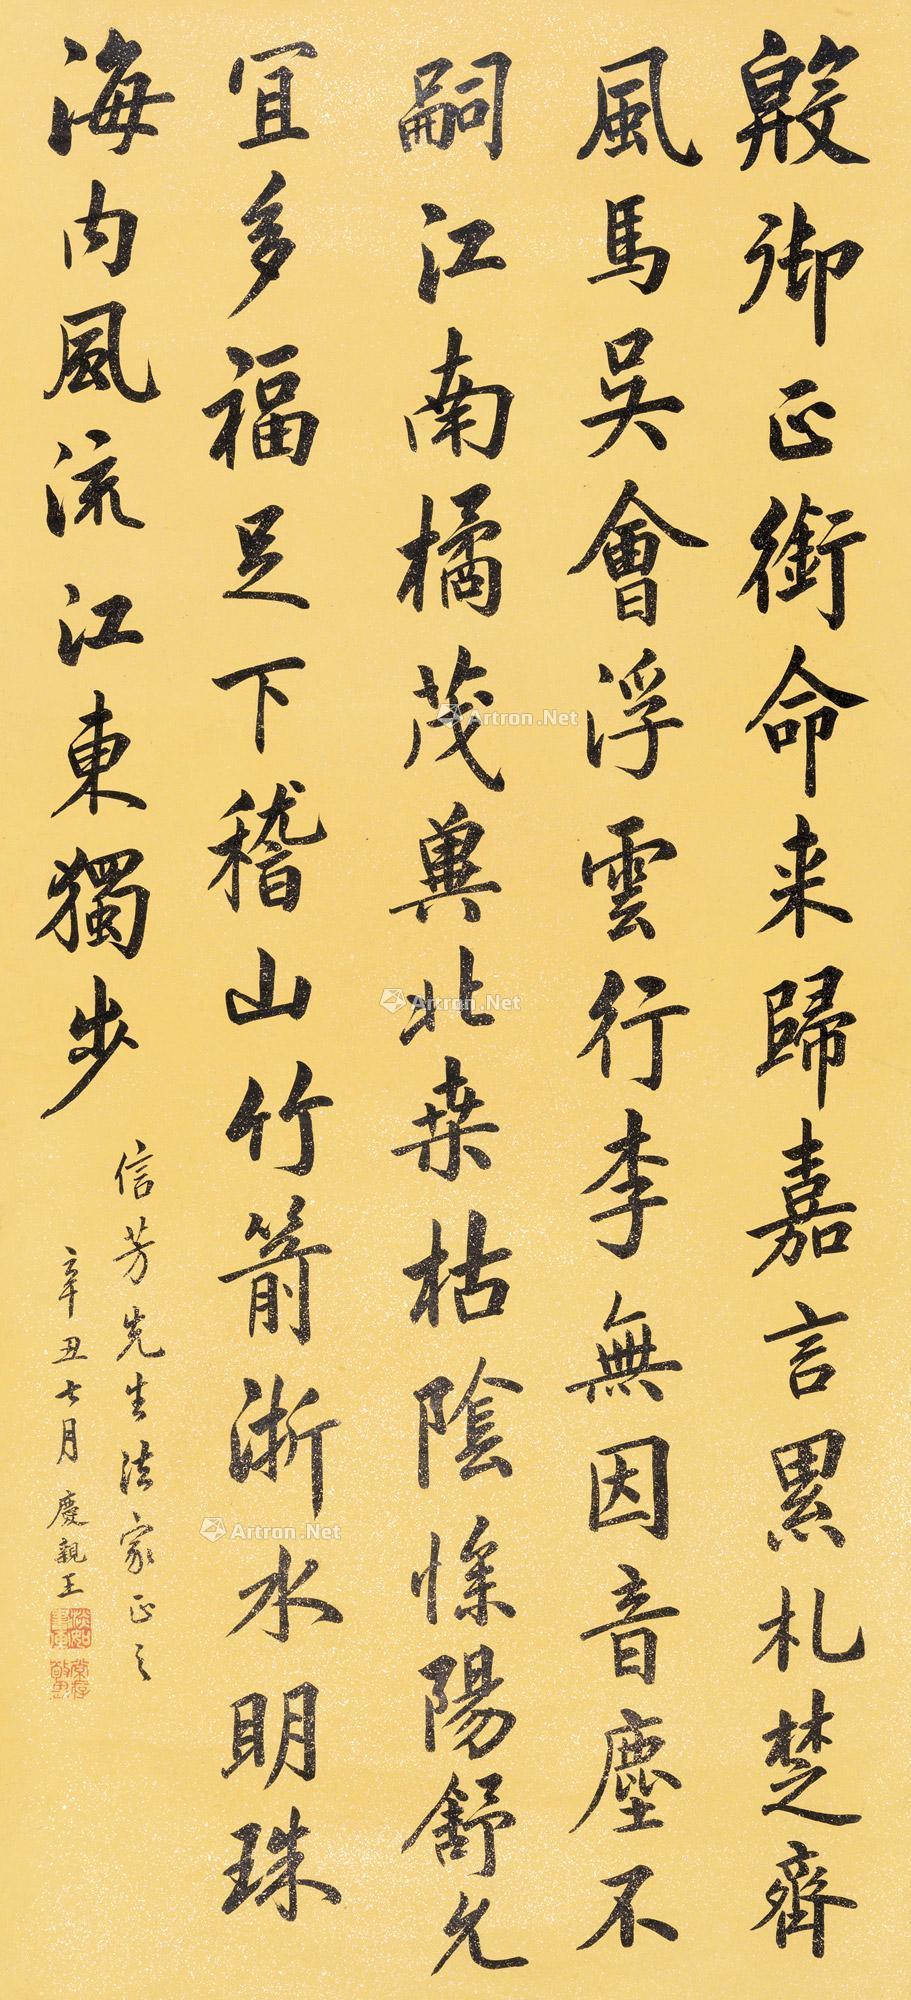 殷御正銜命来歸嘉言累札楚齊
風馬吳會浮雲行李無因音塵不
嗣江南橘茂冀北桒枯陰慘陽舒允
宜多福足下稽山竹箭浙水明珠
海内風流江東獨步
信芳先生法家正之
辛丑七月慶親王
Artron.Net
Artron.Net
Artron.Net